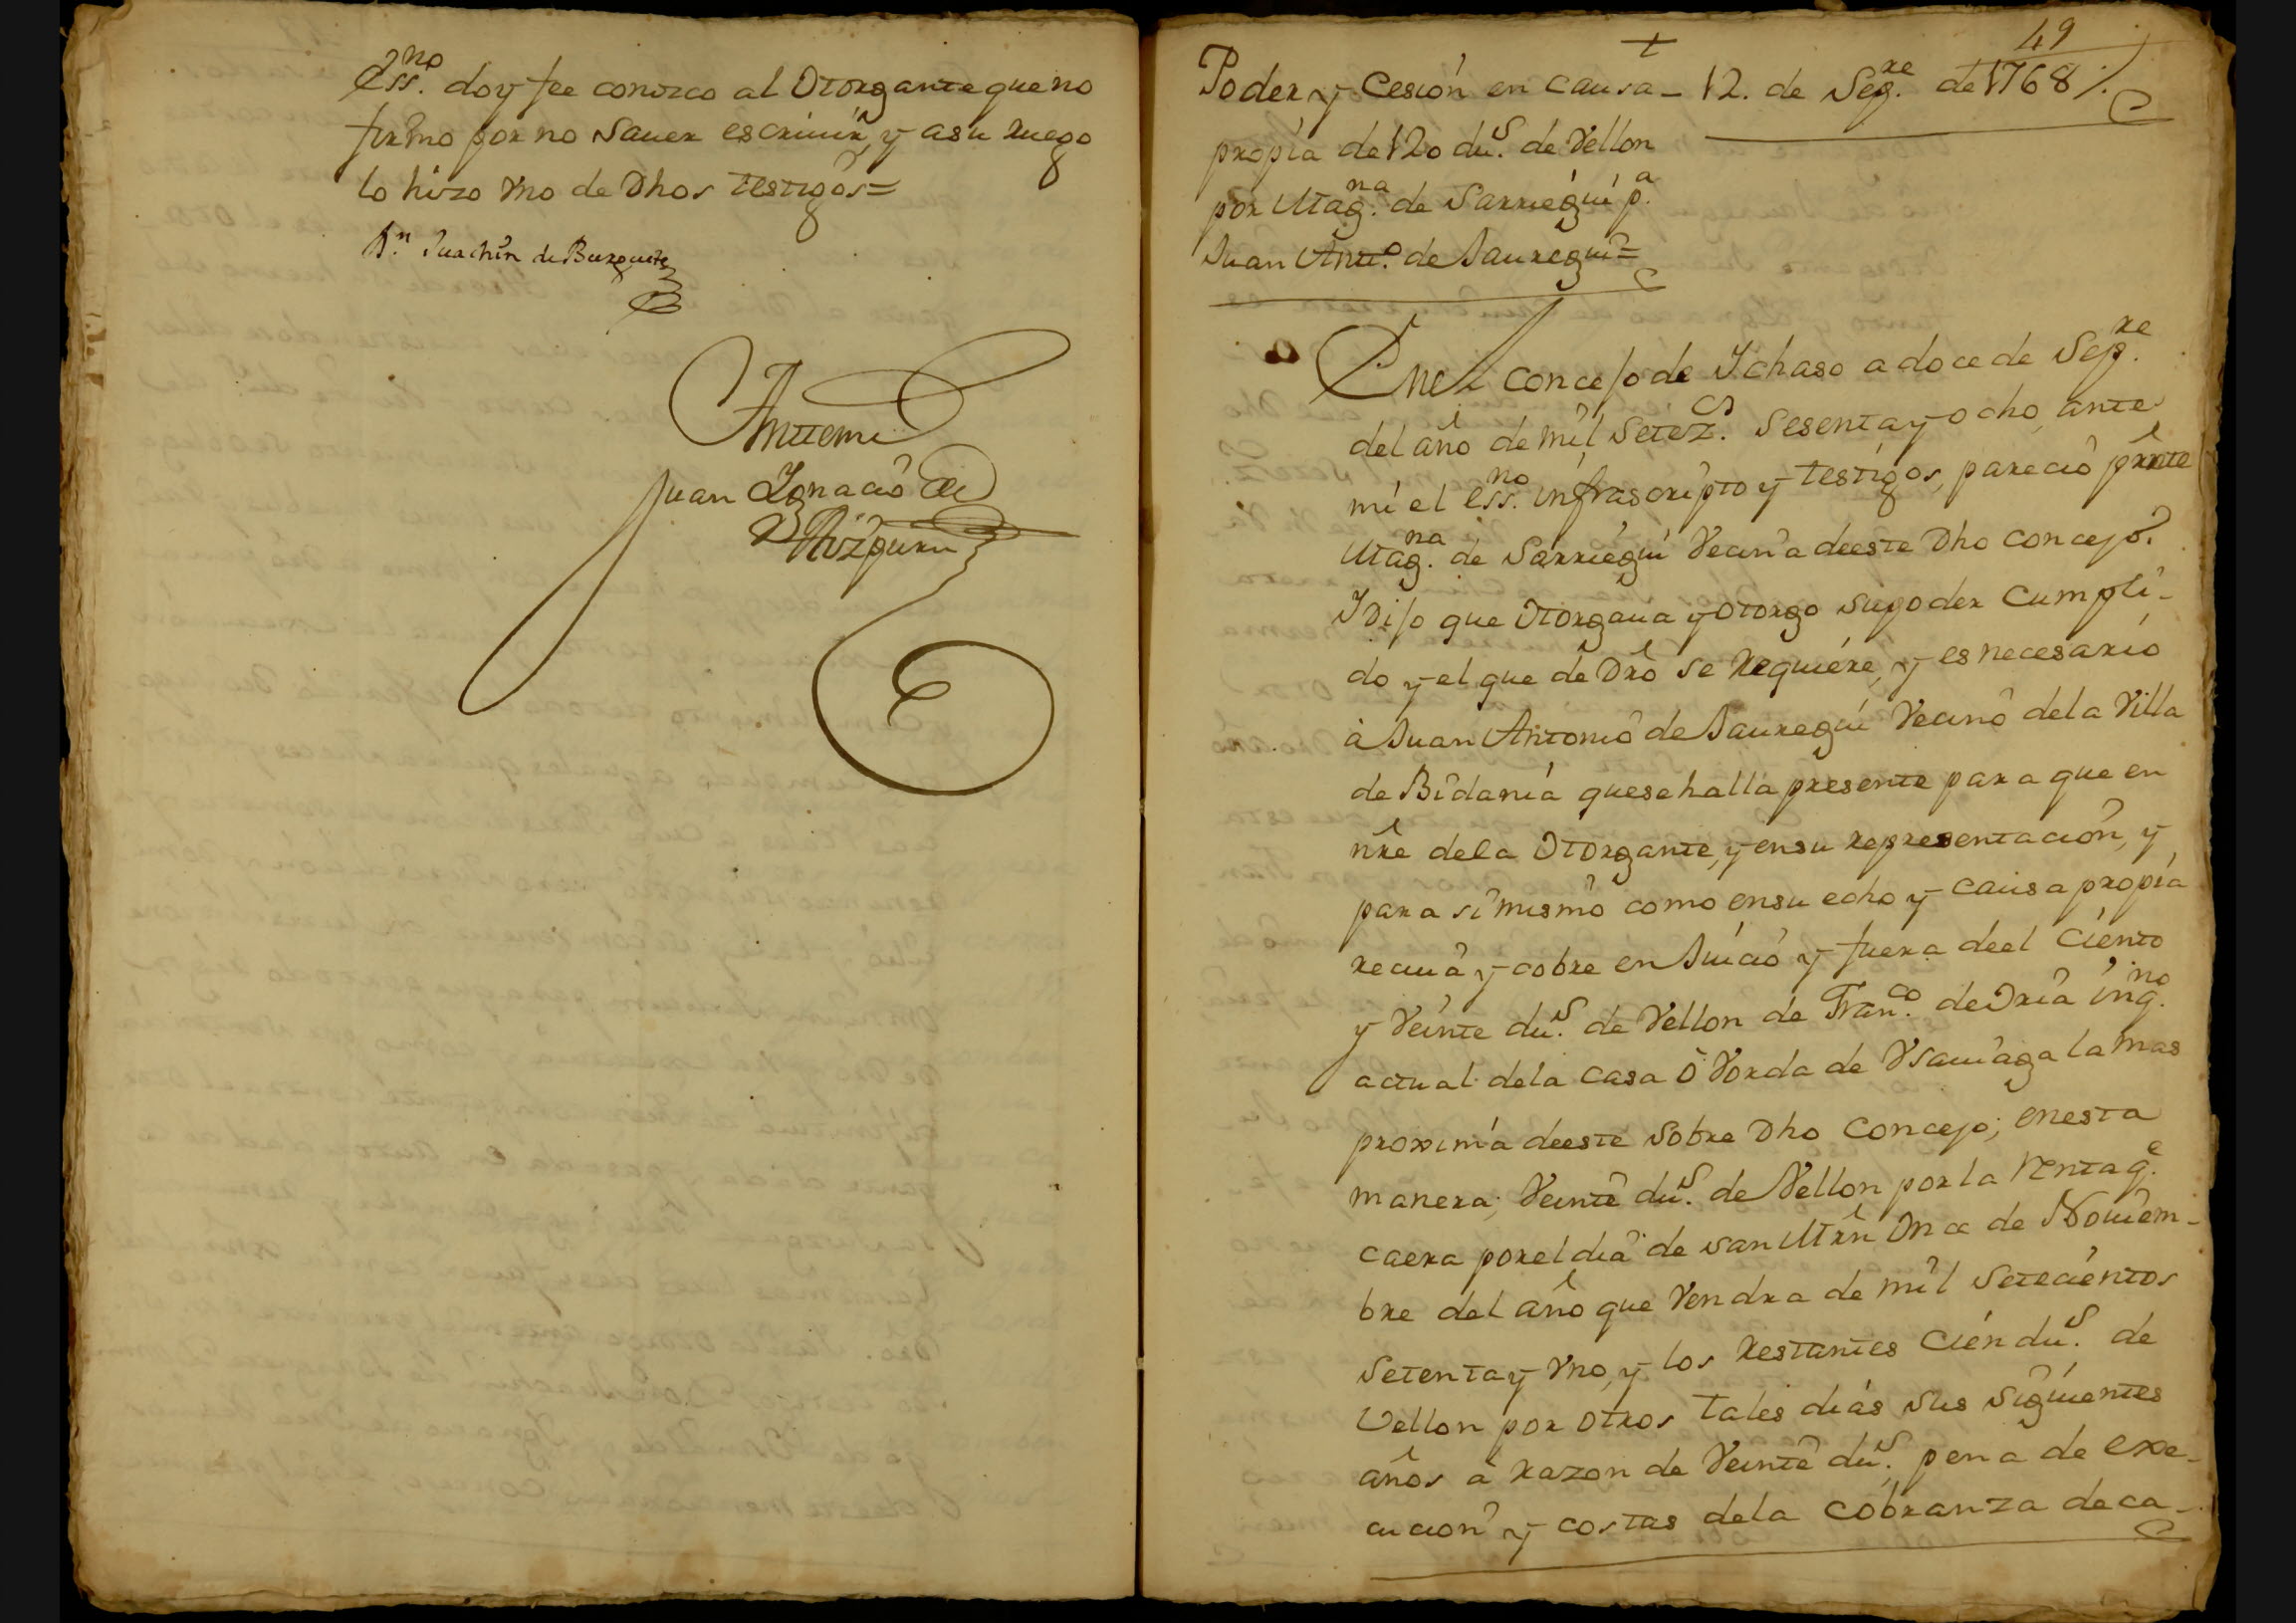 Essno. doy fee conozco al Otorgante que no
firmo por no saver escriuir, y a su ruego
lo hizo Vno de Dhos testigos=
Dn. Juachin de Burguete
Anttemi
Juan Ignacio de
Aizpuru
49
†
Poder y Cesión en causa - 12. de Sepre. de 1768 /.
propia de 120 dus. de Vellon
por Magna. de Sarriegui pa.
Juan Anto. de Jauregui=
En el Concejo de Ichaso a doce de Sepre.
del año de mil Setezs. Sesenta y ocho, ante
mi el essno. infrascripto y testigos, pareció prnte
Magna. de Sarriegui Vecina deeste Dho Concejo.
I Dijo que Otorgaua y otorgo su poder Cumpli-
do y el que de Dro se Requiére, y es necesario
à Juan Antonio de Jauregui Vecino de la Villa
de Bidania que se halla presente para que en
nre de la Otorgante, y en su representacion, y
para si mismo como en su echo y causa propia
reciua y cobre en Juicio y fuera deel Ciento
y Veinte dus. de Vellon de Franco. de Oria inqno.
actual de la Casa ò Vorda de Vsauiaga la mas
proxima deeste Sobre Dho Concejo; en esta
manera; Veinte dus. de Vellon por la Renta qe.
caera por el dia de san Mrn Once de Nouiem-
bre del año que Vendra de mil Setecientos
Setenta y Vno, y los Restantes Cien dus. de
Vellon por otros tales dias sus siguientes
años à razon de Veinte dus. pena de exe-
cucion y costas de la Cobranza de ca-